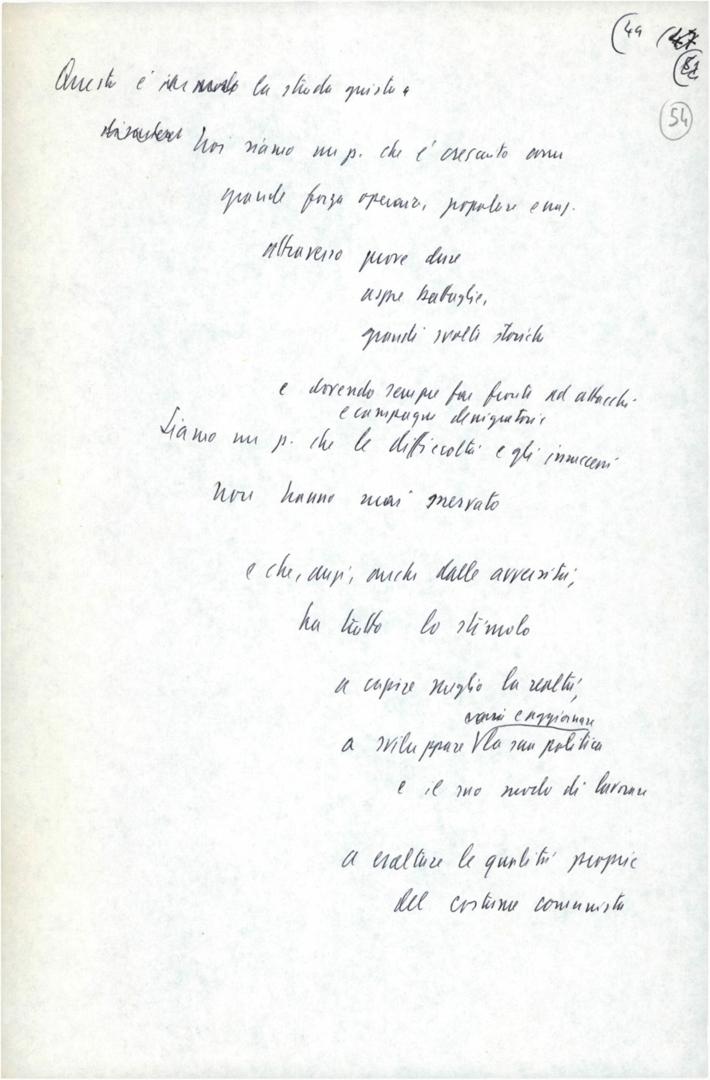 (49 (47
(52
54
Questa è la strada giusta.
Noi siamo un p. che è cresciuto come
grande forza operaia, popolare e naz.
attraverso prove dure
aspre battaglie,
grandi svolte storiche
e dovendo sempre far fronte ad attacchi
e campagne denigratorie
Siamo un p. che le difficoltà e gli insuccessi
non hanno mai snervato
e che, anzi, anche dalle avversità,
ha tratto lo stimolo
a capire meglio la realtà,
e aggiornare
a sviluppare la sua politica
e il suo modo di lavorare
a esaltare le qualità proprie
del costume comunista